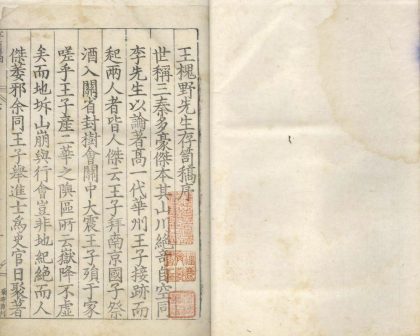 王槐野先生存笥稿序
世稱三秦多豪傑本其山川絕奇自空同
李先生以論者高一代華州王子接跡而
起兩人者皆人傑云王子拜南京國子祭
酒入關省封樹會關中大震王子殞于家
嗟乎王子產二華之陝區所云嶽降不虛
矣而地坼山崩與行會豈非地紀絕而人
傑萎邪余同王子舉進士爲史官日聚著